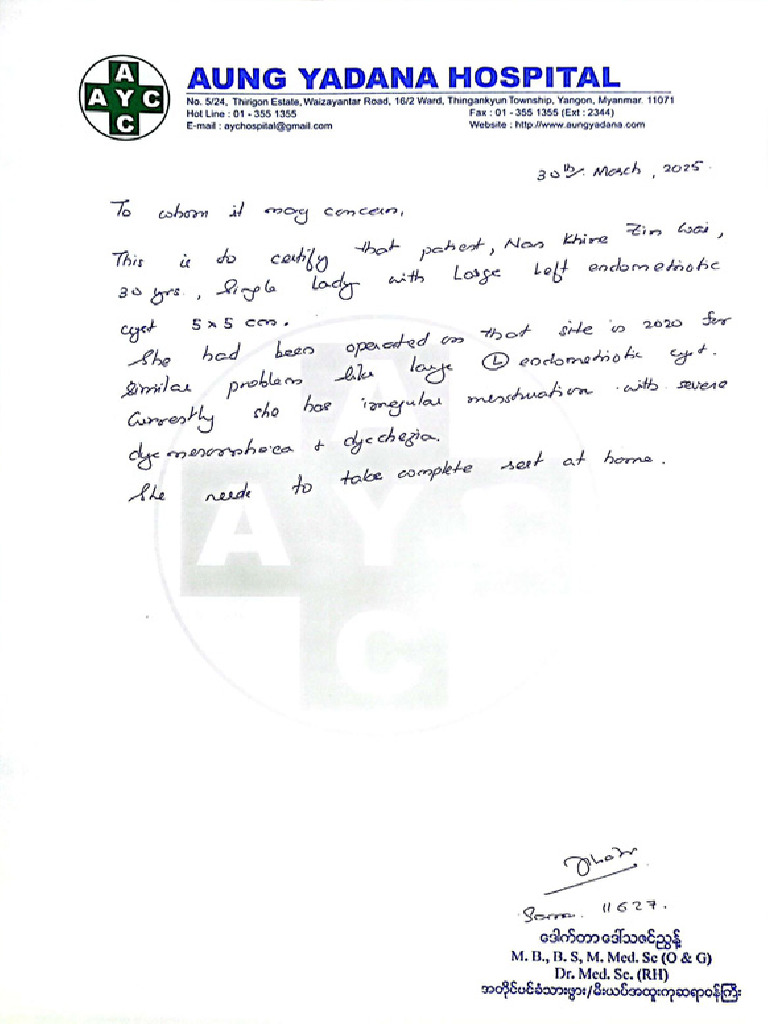 A
A Y C
C
AUNG YADANA HOSPITAL
No. 5/24, Thirigon Estate, Waizayantar Road, 16/2 Ward, Thingankyun Township, Yangon, Myanmar. 11071
Hot Line : 01 - 355 1355 Fax : 01 - 355 1355 (Ext : 2344)
E-mail : aychospital@gmail.com Website : http://www.aungyadana.com
30th March, 2025.
To whom it may concern,
This is to certify that patient, Nan Khine Zin Wai,
30 yrs, Single lady with Large Left endometriotic
cyst 5 x 5 cm.
She had been operated on that site in 2020 for
similar problem like large (L) endometriotic cyst.
Currently she has irregular menstruation with severe
dysmenorrhoea + dyschezia.
She needs to take complete rest at home.
A
A Y C
C
11627.
ဒေါက်တာဒေါ်သဇင်ညွန့်
M. B., B. S, M. Med. Sc (O & G)
Dr. Med. Sc. (RH)
အတိုင်ပင်ခံသားဖွား/မီးယပ်အထူးကုဆရာဝန်ကြီး